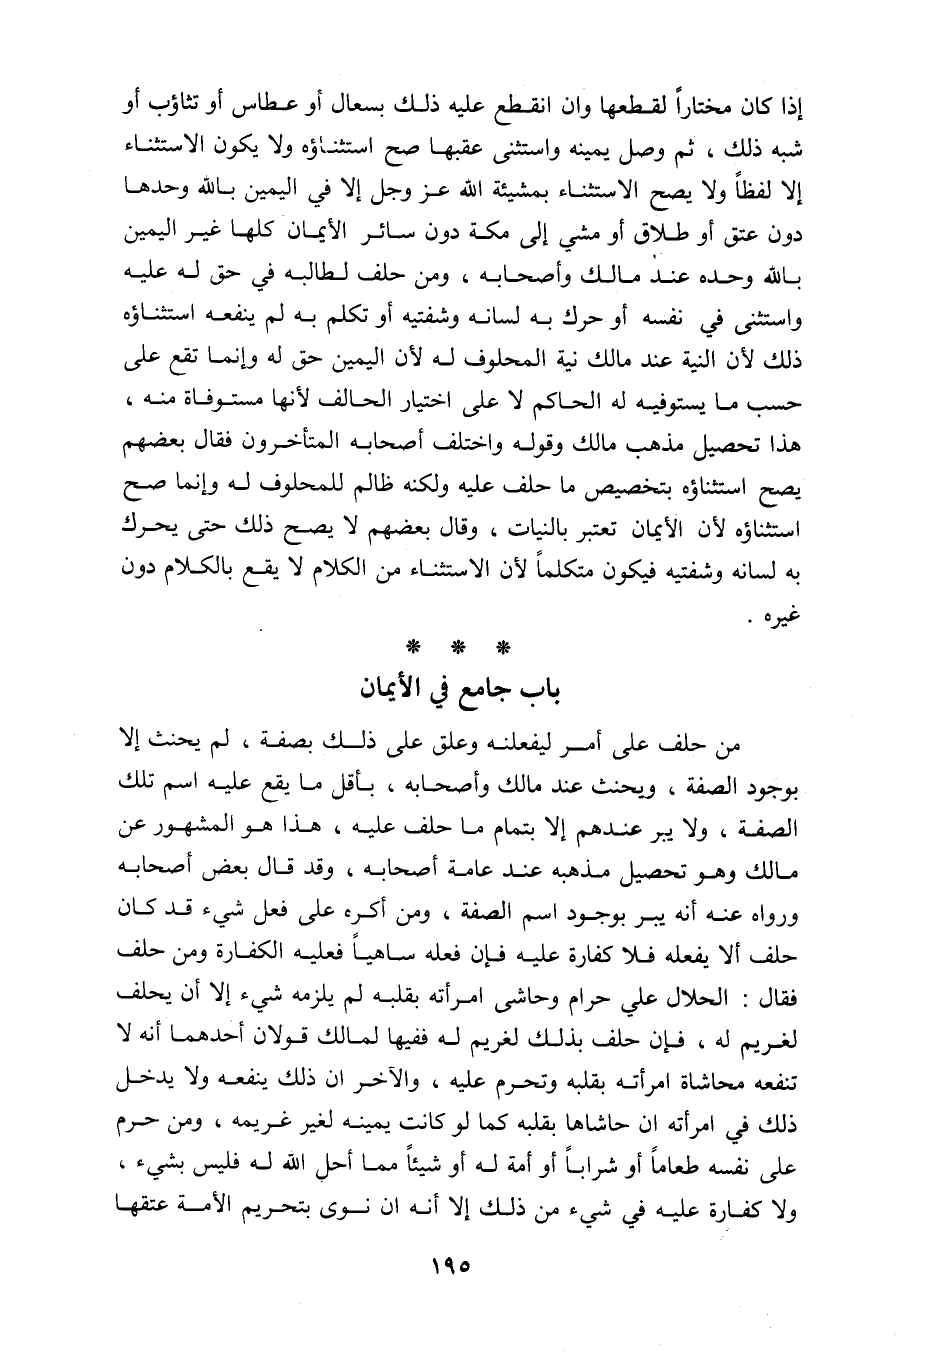 إذا كان مختاراً لقطعها وان انقطع عليه ذلك بسعال أو عطاس أو تثاؤب أو
شبه ذلك ، ثم وصل يمينه واستثنى عقبها صح استثناؤه ولا يكون الاستثناء
إلا لفظاً ولا يصح الاستثناء بمشيئة الله عز وجل إلا في اليمين بالله وحدها
دون عتق أو طلاق أو مشي إلى مكة دون سائر الأيمان كلها غير اليمين
بالله وحده عند مالك وأصحابه ، ومن حلف لطالبه في حق له عليه
واستثنى في نفسه أو حرك به لسانه وشفتيه أو تكلم به لم ينفعه استثناؤه
ذلك لأن النية عند مالك نية المحلوف له لأن اليمين حق له وإنما تقع على
حسب ما يستوفيه له الحاكم لا على اختيار الحالف لأنها مستوفاة منه ،
هذا تحصيل مذهب مالك وقوله واختلف أصحابه المتأخرون فقال بعضهم
يصح استثناؤه بتخصيص ما حلف عليه ولكنه ظالم للمحلوف له وإنما صح
استثناؤه لأن الأيمان تعتبر بالنيات ، وقال بعضهم لا يصح ذلك حتى يحرك
به لسانه وشفتيه فيكون متكلماً لأن الاستثناء من الكلام لا يقع بالكلام دون
غيره .
* * *
باب جامع في الأيمان
من حلف على أمر ليفعلنه وعلق على ذلك بصفة ، لم يحنث إلا
بوجود الصفة ، ويحنث عند مالك وأصحابه ، بأقل ما يقع عليه اسم تلك
الصفة ، ولا يبر عندهم إلا بتمام ما حلف عليه ، هذا هو المشهور عن
مالك وهو تحصيل مذهبه عند عامة أصحابه ، وقد قال بعض أصحابه
ورواه عنه أنه يبر بوجود اسم الصفة ، ومن أكره على فعل شيء قد كان
حلف ألا يفعله فلا كفارة عليه فإن فعله ساهياً فعليه الكفارة ومن حلف
فقال : الحلال علي حرام وحاشى امرأته بقلبه لم يلزمه شيء إلا أن يحلف
لغريم له ، فإن حلف بذلك لغريم له ففيها لمالك قولان أحدهما أنه لا
تنفعه محاشاة امرأته بقلبه وتحرم عليه ، والآخر ان ذلك ينفعه ولا يدخل
ذلك في امرأته ان حاشاها بقلبه كما لو كانت يمينه لغير غريمه ، ومن حرم
على نفسه طعاماً أو شراباً أو أمة له أو شيئاً مما أحل الله له فليس بشيء ،
ولا كفارة عليه في شيء من ذلك إلا أنه ان نوى بتحريم الأمة عتقها
١٩٥